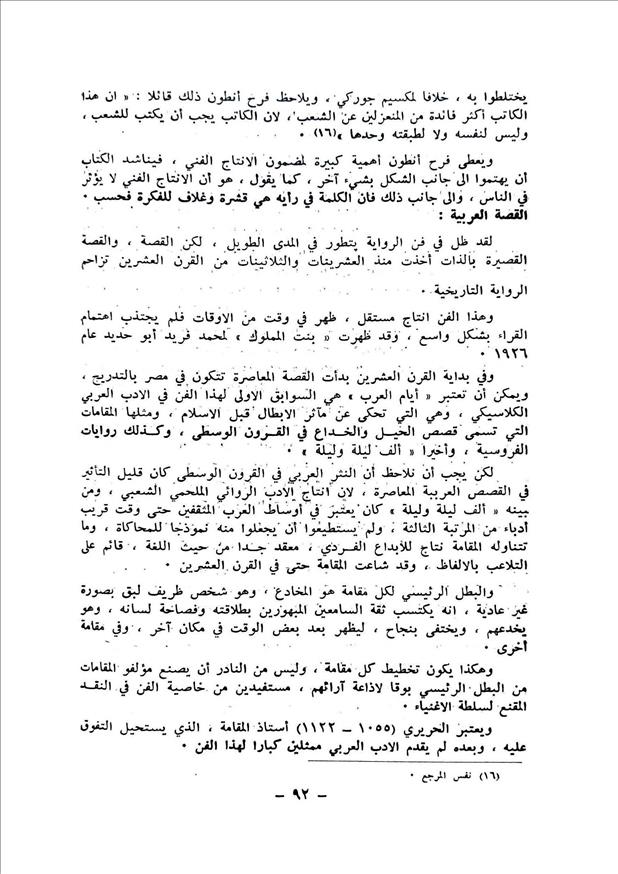 يختلطوا به ، خلافا لمكسيم جوركي ، ويلاحظ فرح أنطون ذلك قائلا : « ان هذا
الكاتب أكثر فائدة من المنعزلين عن الشعب ، لان الكاتب يجب أن يكتب للشعب ،
وليس لنفسه ولا لطبقته وحدها »(١٦) ٠
ويعطى فرح أنطون أهمية كبيرة لمضمون الانتاج الفني ، فيناشد الكتاب
أن يهتموا الى جانب الشكل بشيء آخر ، كما يقول ، هو أن الانتاج الفني لا يؤثر
في الناس ، والى جانب ذلك فان الكلمة في رأيه هي قشرة وغلاف للفكرة فحسب ٠
القصة العربية :
لقد ظل في فن الرواية يتطور في المدى الطويل ، لكن القصة ، والقصة
القصيرة بالذات أخذت منذ العشرينات والثلاثينات من القرن العشرين تزاحم
الرواية التاريخية ٠
وهذا الفن انتاج مستقل ، ظهر في وقت من الاوقات فلم يجتذب اهتمام
القراء بشكل واسع ، وقد ظهرت « بنت المملوك » لمحمد فريد أبو حديد عام
١٩٢٦ ٠
وفي بداية القرن العشرين بدأت القصة المعاصرة تتكون في مصر بالتدريج ،
ويمكن أن تعتبر « أيام العرب » هي السوابق الاولى لهذا الفن في الادب العربي
الكلاسيكي ، وهي التي تحكى عن مآثر الابطال قبل الاسلام ، ومثلها المقامات
التي تسمى قصص الحيل والخداع في القرون الوسطى ، وكذلك روايات
الفروسية ، وأخيرا « ألف ليلة وليلة » ٠
لكن يجب أن نلاحظ أن النثر العربي في القرون الوسطى كان قليل التأثير
في القصص العربية المعاصرة ، لان انتاج الادب الروائي الملحمي الشعبي ، ومن
بينه « ألف ليلة وليلة » كان يعتبر في أوساط العرب المثقفين حتى وقت قريب
أدباء من المرتبة الثالثة ، ولم يستطيعوا أن يجعلوا منه نموذجا للمحاكاة ، وما
تتناوله المقامة نتاج للأبداع الفردي ، معقد جدا من حيث اللغة ، قائم على
التلاعب بالالفاظ ، وقد شاعت المقامة حتى في القرن العشرين ٠
والبطل الرئيسي لكل مقامة هو المخادع ، وهو شخص ظريف لبق بصورة
غير عادية ، انه يكتسب ثقة السامعين المبهورين بطلاقته وفصاحة لسانه ، وهو
يخدعهم ، ويختفى بنجاح ، ليظهر بعد بعض الوقت في مكان آخر ، وفي مقامة
أخرى ٠
وهكذا يكون تخطيط كل مقامة ، وليس من النادر أن يصنع مؤلفو المقامات
من البطل الرئيسي بوقا لاذاعة آرائهم ، مستفيدين من خاصية الفن في النقد
المقنع لسلطة الاغنياء ٠
ويعتبر الحريري (١٠٥٥ – ١١٢٢) أستاذ المقامة ، الذي يستحيل التفوق
عليه ، وبعده لم يقدم الادب العربي ممثلين كبارا لهذا الفن ٠
(١٦) نفس المرجع ٠
– ٩٢ –